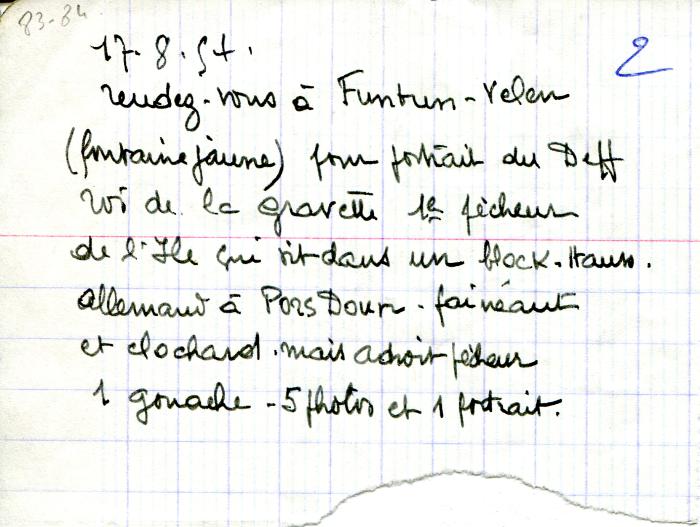 83-84
2
17.8.54.
rendez-vous à Funtun-Velen
(fontaine jaune) pour portrait du Deff
roi de la gravette 1er pêcheur
de l'Ile qui vit dans un block-Haus.
allemand à Pors Doun - fainéant
et clochard. mais adroit pêcheur
1 gouache - 5 photos et 1 portrait.